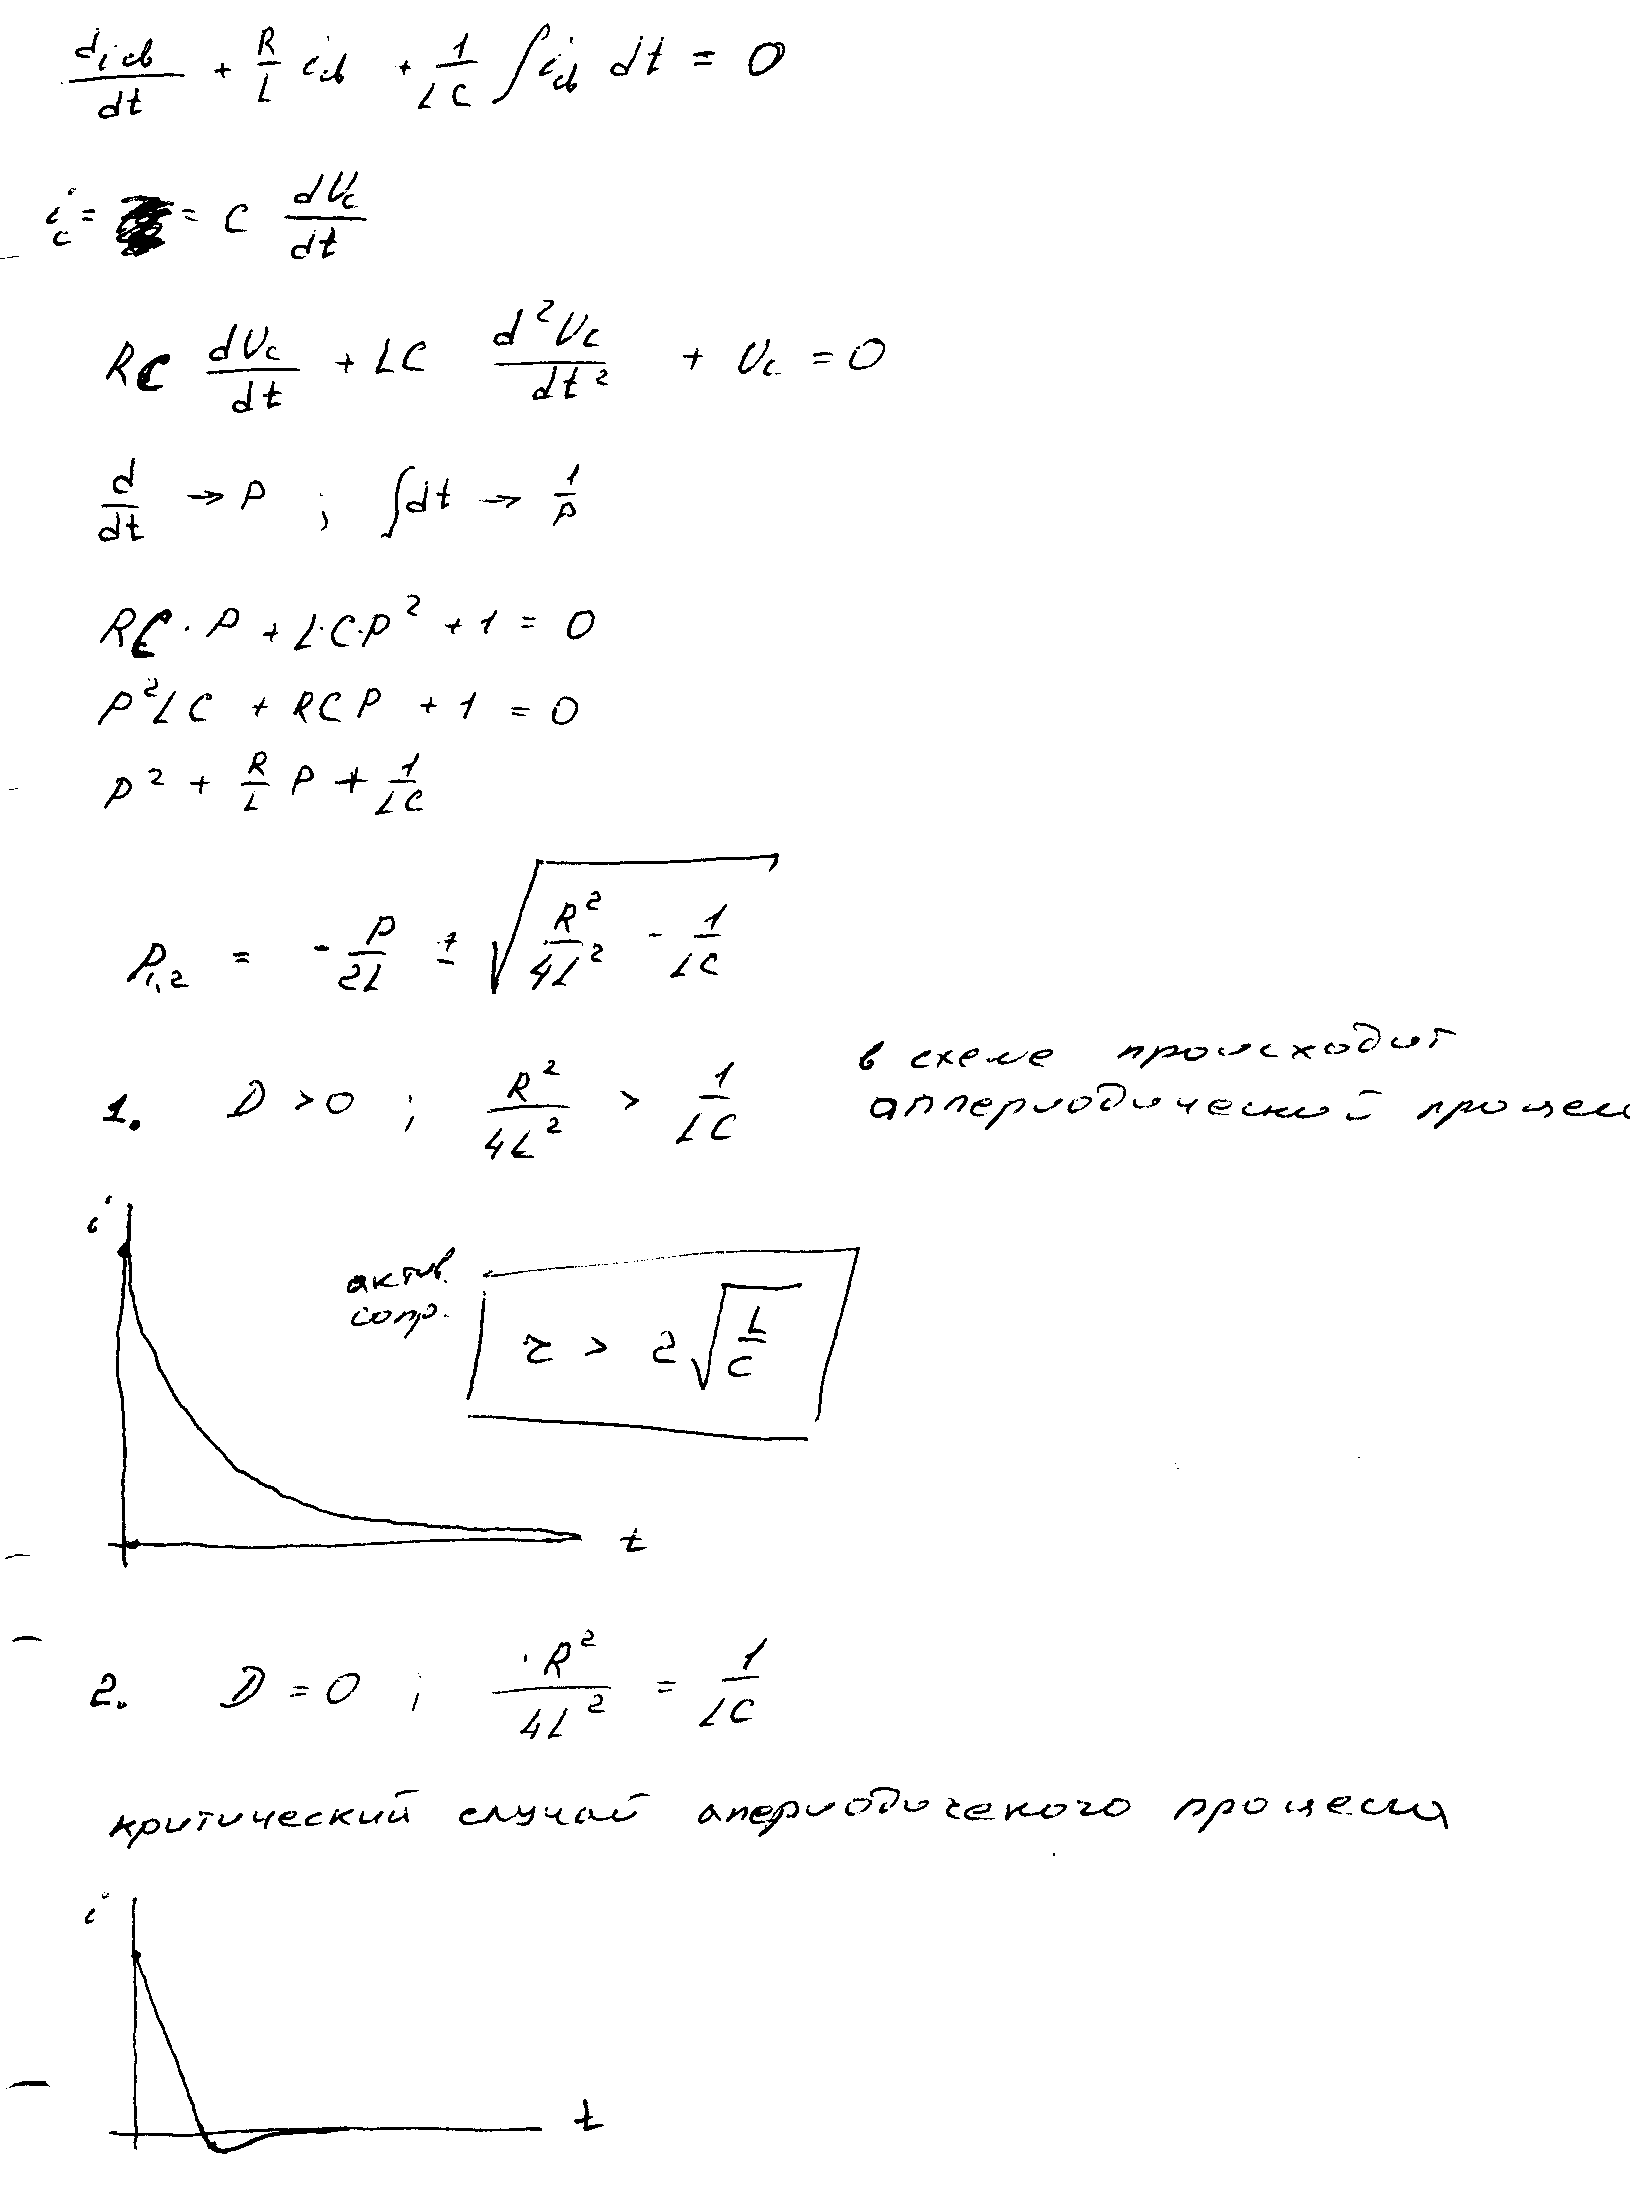 di св/dt + R/L i св + 1/LC ∫ i св dt = 0
i c = = C dUc/dt
RC dUc/dt + LC d²Uc/dt² + Uc = 0
d/dt → P ; ∫dt → 1/P
RC · P + L·C·P² + 1 = 0
P²LC + RCP + 1 = 0
P² + R/L P + 1/LC
P1,2 = - P/2L ± √(R²/4L² - 1/LC)
в схеме происходит
1. D > 0 ; R²/4L² > 1/LC аппериодический процесс
i
актив.
сопр. r > 2√(L/C)
t
2. D = 0 ; R²/4L² = 1/LC
критический случай апериодического процесса
i
t